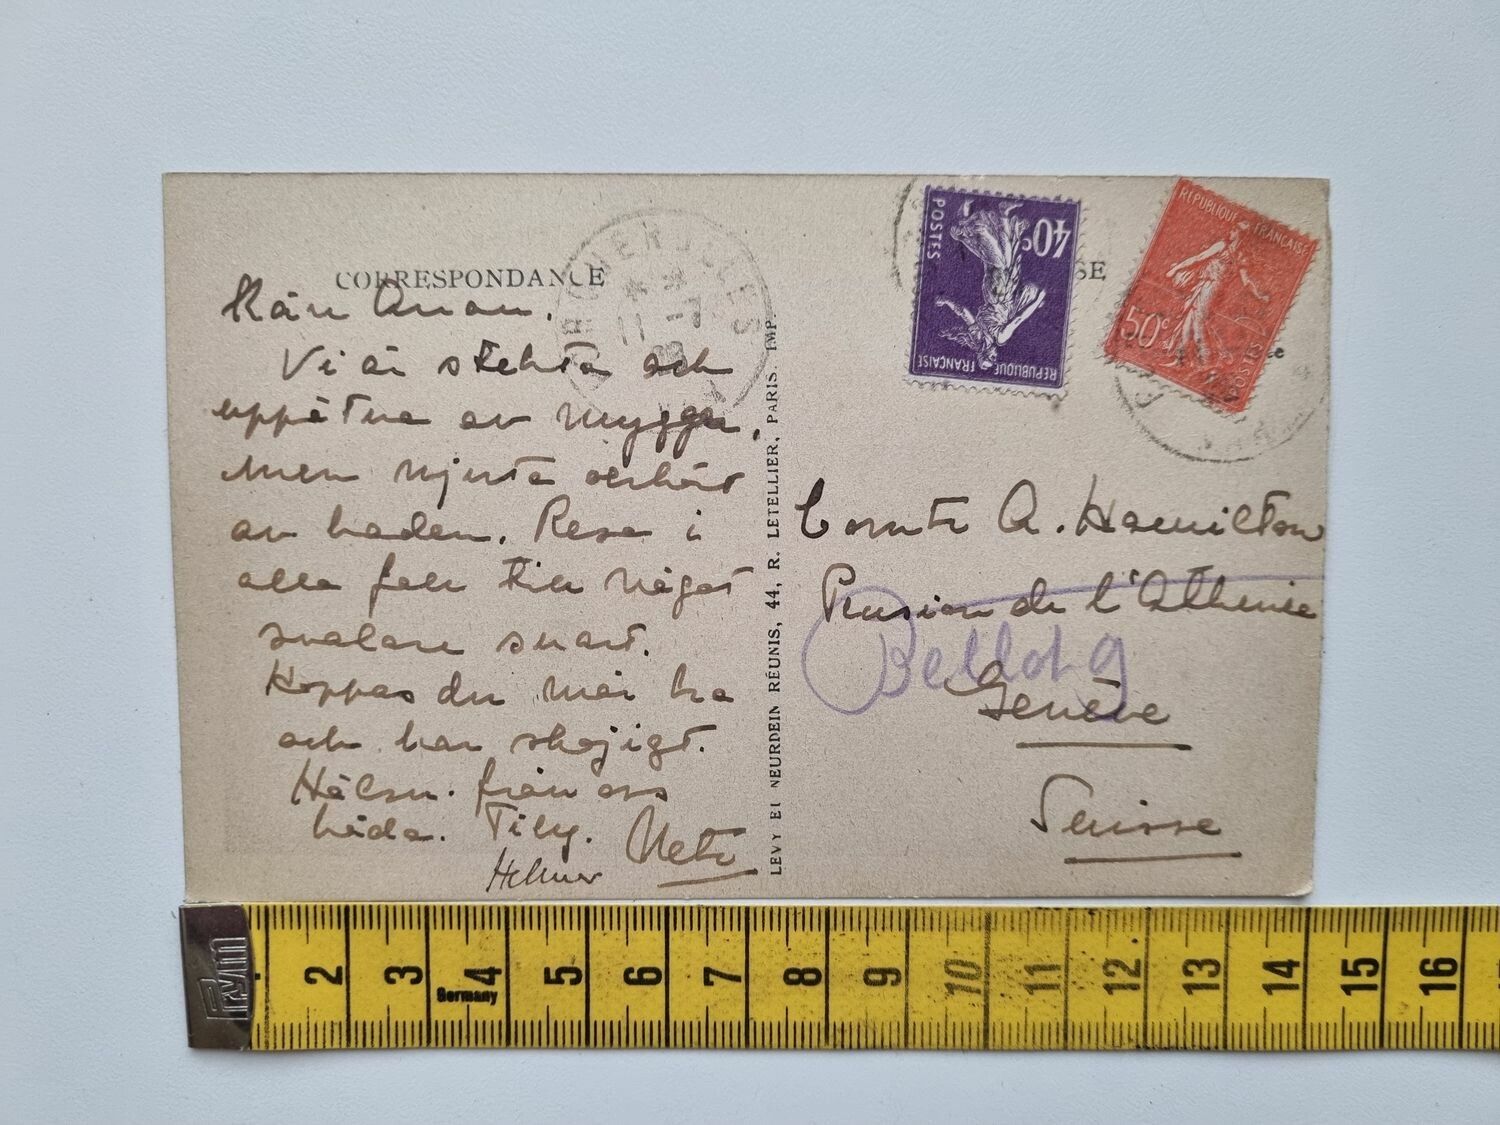 CORRESPONDANCE
Vi är stekta och
uppätna av mygg,
men njuta oerhört
av baden. Resa i
alla fall till något
svalare snart.
Hoppas du mår bra
och har skojigt.
Hälsn. från oss
båda. Tily.
LEVY ET NEURDEIN RÉUNIS, 44, R. LETELLIER, PARIS. IMP.
POSTES
40c
REPUBLIQUE FRANÇAISE
REPUBLIQUE FRANÇAISE
50c
POSTES
11 -7
SE
Comte A. Hamilton
Pension de l'Athénée
Genève
Suisse
Prym
2 3 4 5 6 7 8 9 10 11 12 13 14 15 16
Germany